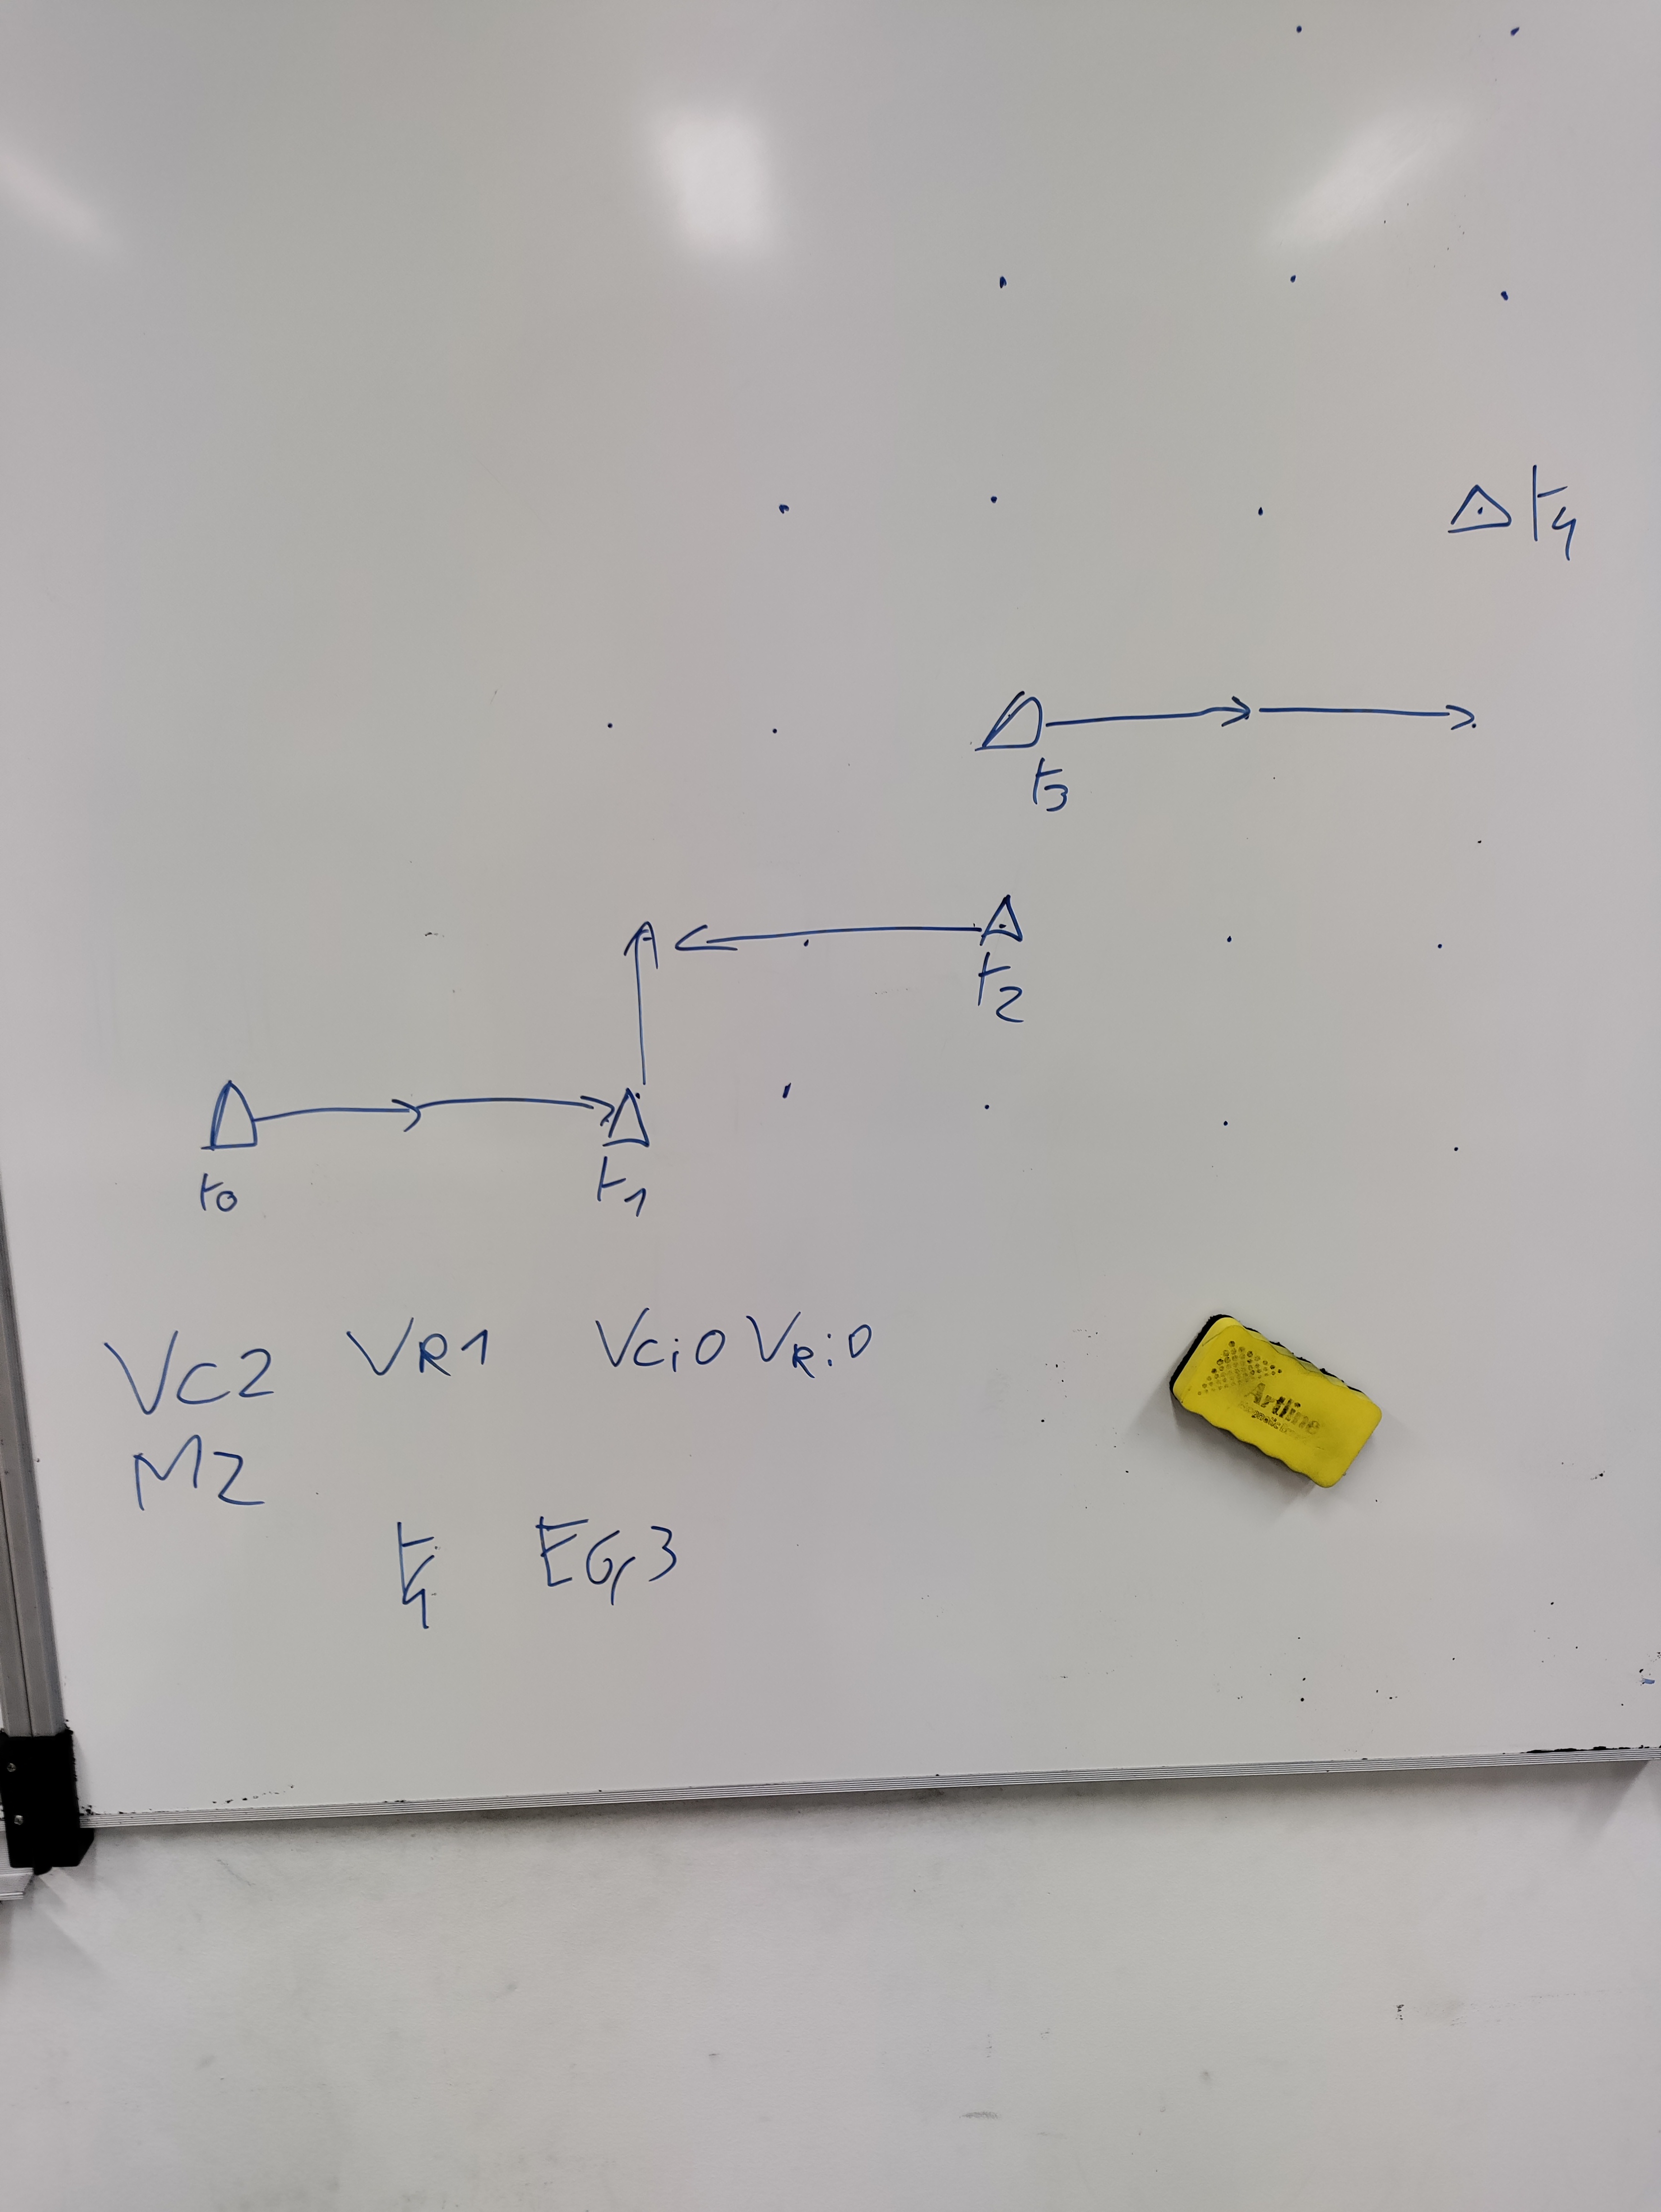 t4
t3
t2
t0
t1
VC2 VR1 VCi0 VRi0
M2
t4 EG,3
Artline